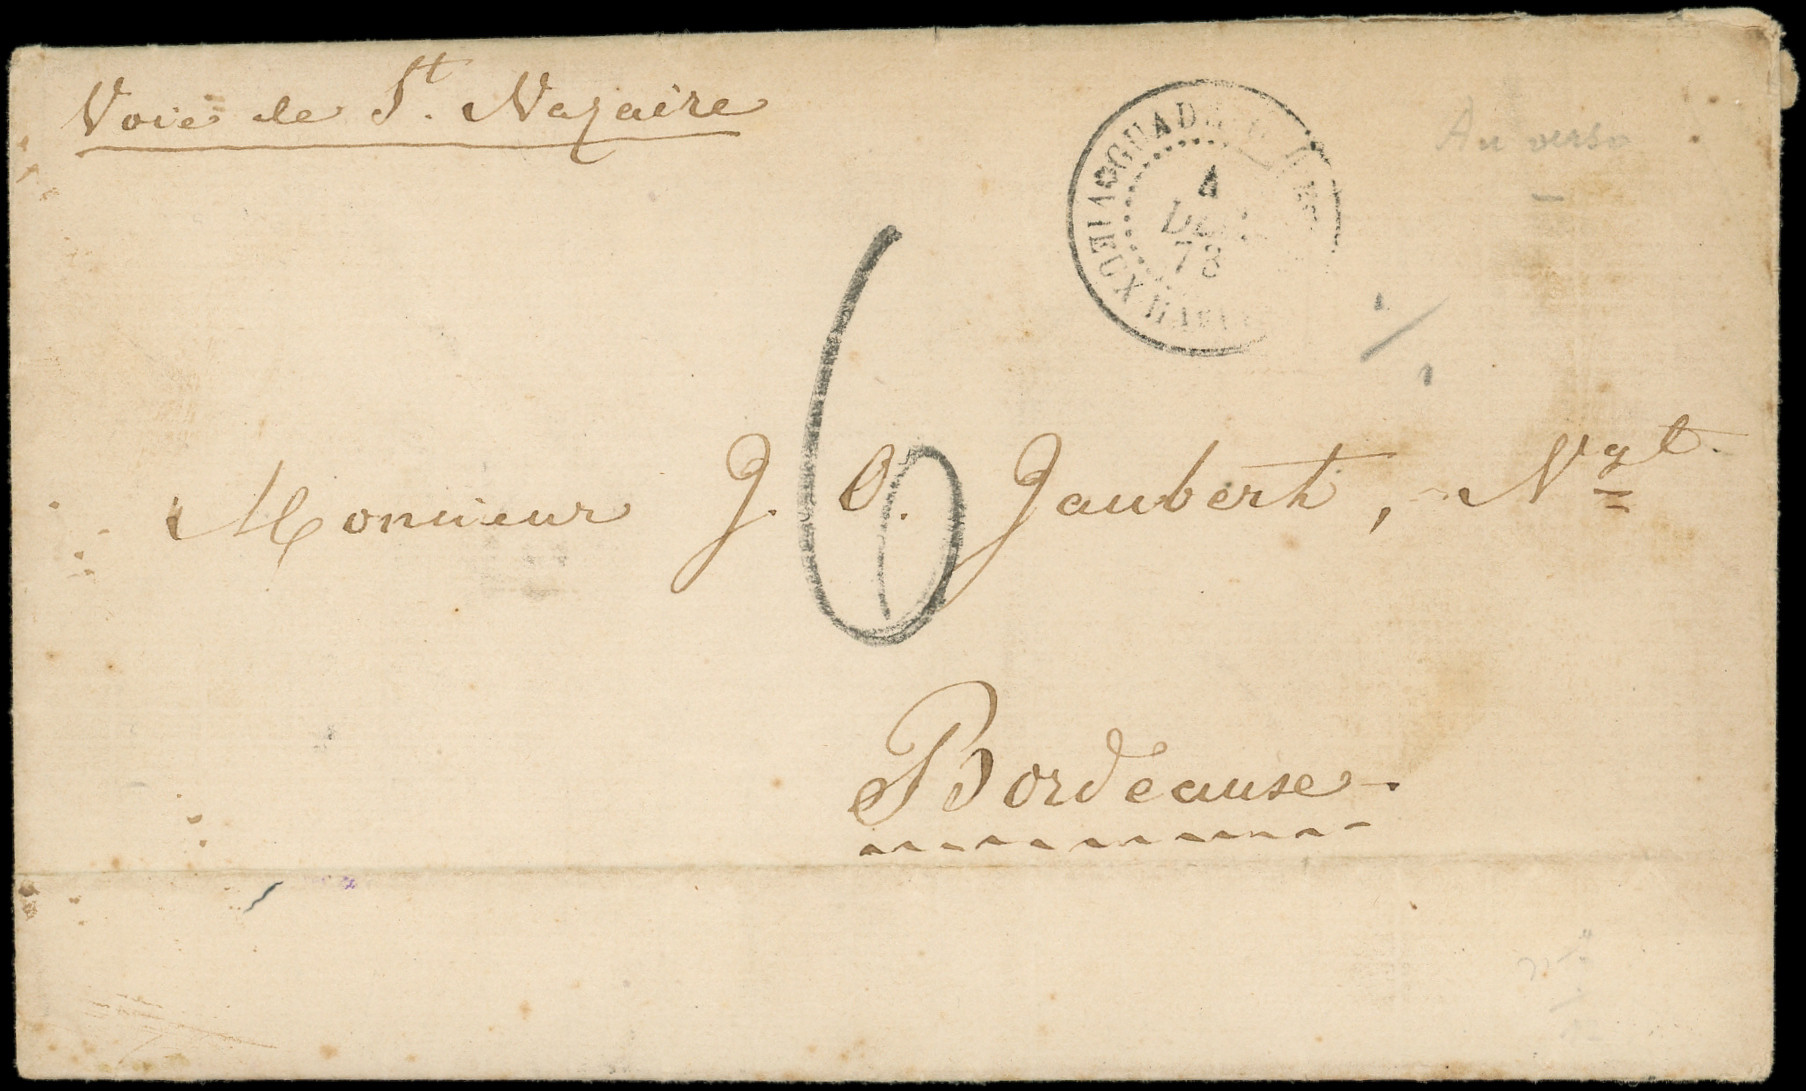 Voie de St. Nazaire
GUADELOUPE
VIEUX-HABIT
4
DEC
78
Au verso
6
Monsieur J. O. Jaubert, Ngt.
Bordeause